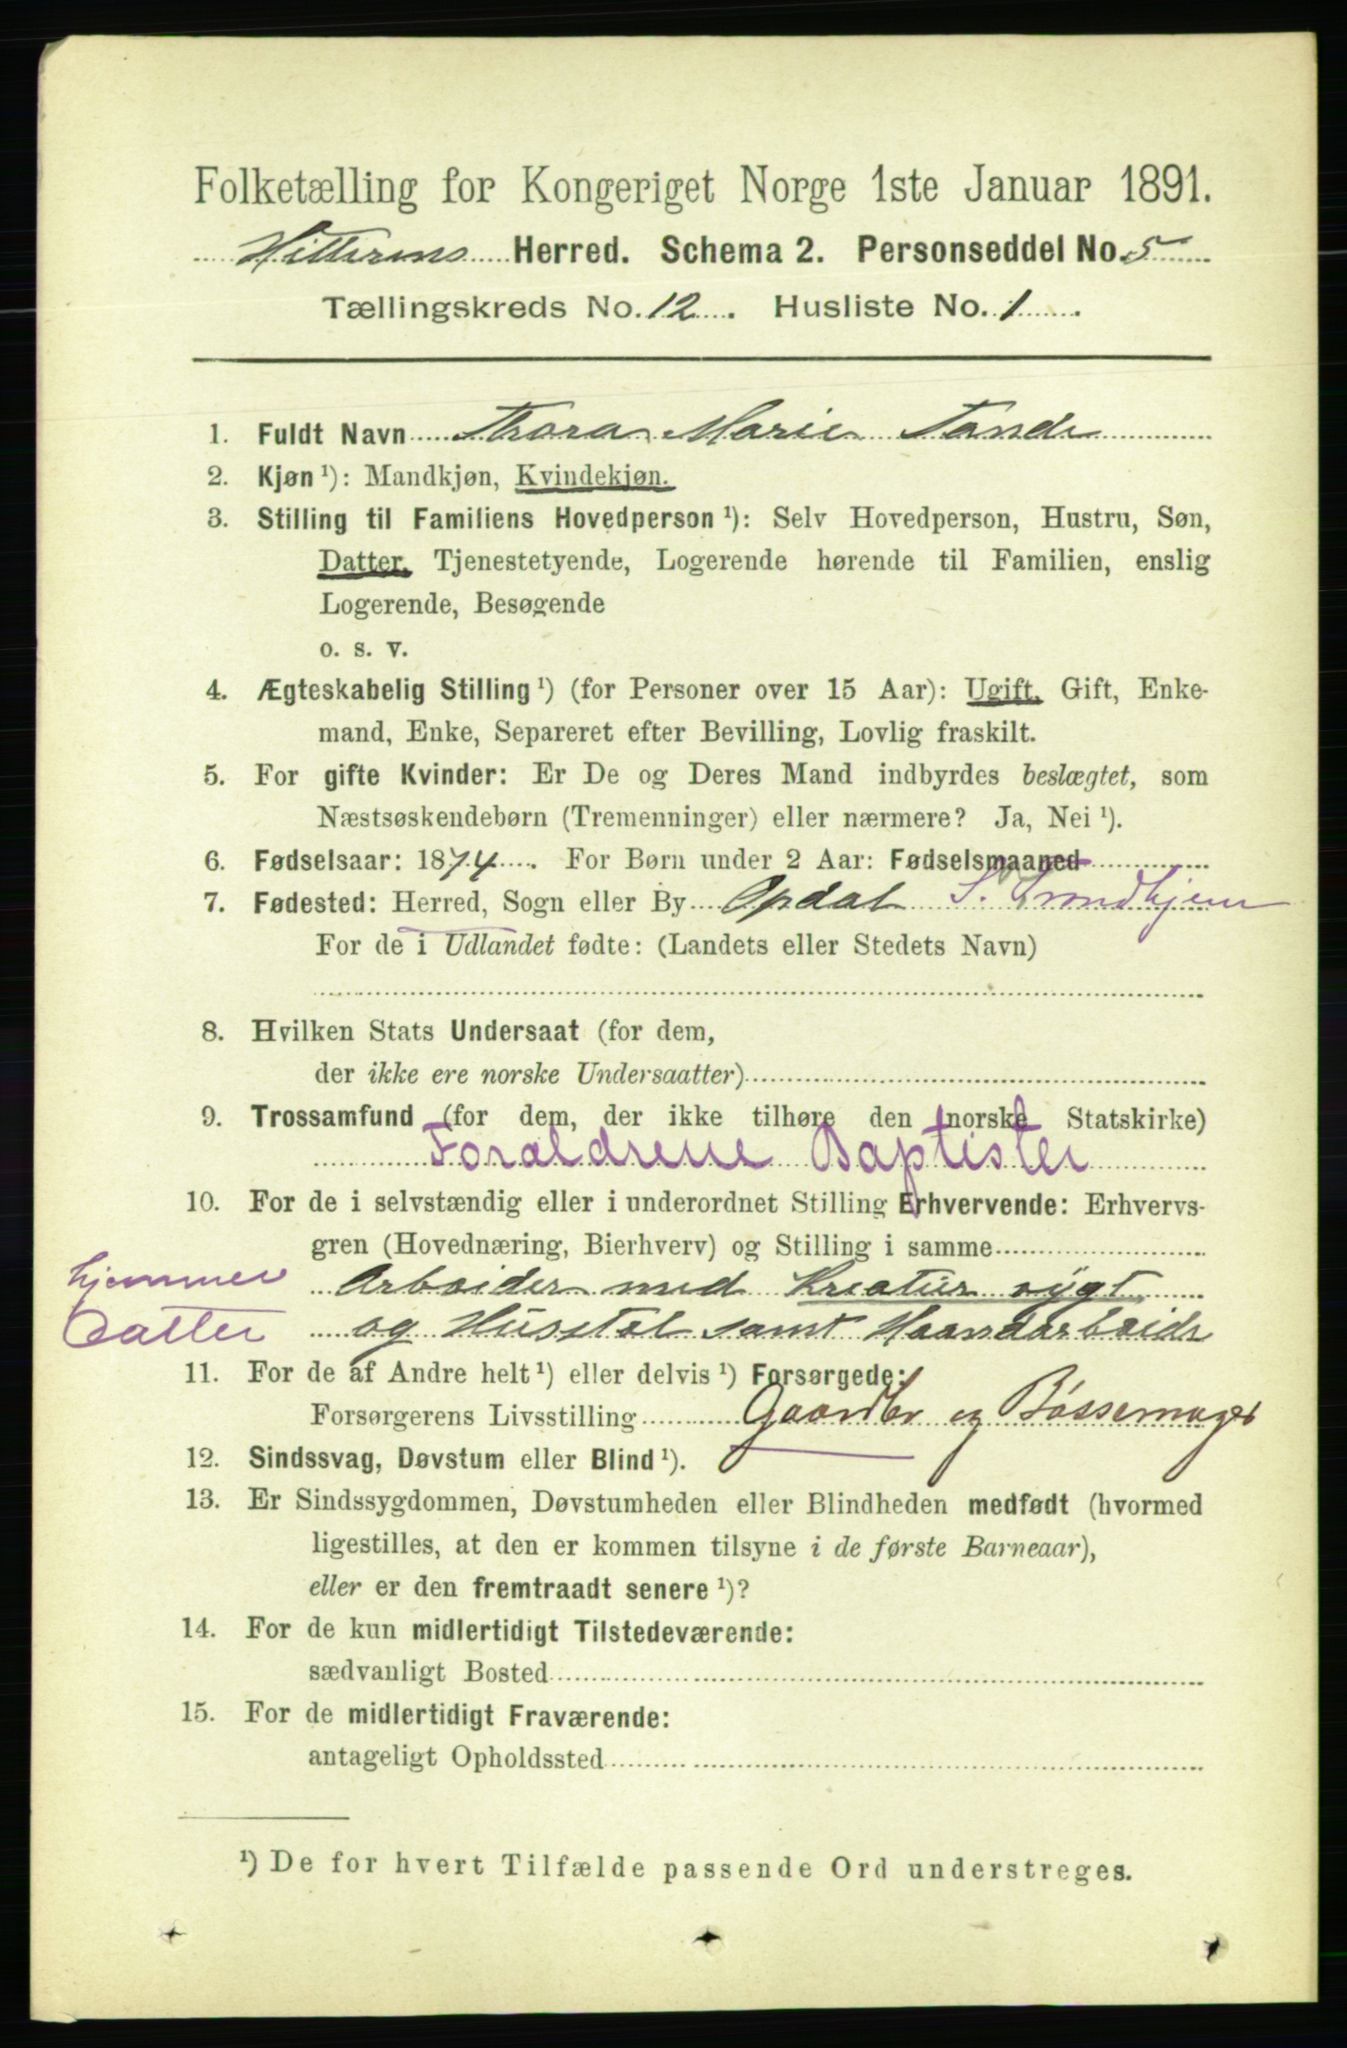 Folketælling for Kongeriget Norge 1ste Januar 1891.
Hitterens Herred. Schema 2. Personseddel No. 5
Tællingskreds No. 12. Husliste No. 1.
1. Fuldt Navn Thora Marie Tande
2. Kjøn ¹): Mandkjøn, Kvindekjøn.
3. Stilling til Familiens Hovedperson ¹): Selv Hovedperson, Hustru, Søn,
Datter, Tjenestetyende, Logerende hørende til Familien, enslig
Logerende, Besøgende
o. s. v.
4. Ægteskabelig Stilling ¹) (for Personer over 15 Aar): Ugift, Gift, Enke-
mand, Enke, Separeret efter Bevilling, Lovlig fraskilt.
5. For gifte Kvinder: Er De og Deres Mand indbyrdes beslægtet, som
Næstsøskendebørn (Tremenninger) eller nærmere? Ja, Nei ¹).
6. Fødselsaar: 1874. For Børn under 2 Aar: Fødselsmaaned
7. Fødested: Herred, Sogn eller By Opdal S. Trondhjem
For de i Udlandet fødte: (Landets eller Stedets Navn)
8. Hvilken Stats Undersaat (for dem,
der ikke ere norske Undersaatter)
9. Trossamfund (for dem, der ikke tilhøre den norske Statskirke)
Foraldrene Baptister
10. For de i selvstændig eller i underordnet Stilling Erhvervende: Erhvervs-
gren (Hovednæring, Bierhverv) og Stilling i samme
hjemmev Arbeider med Kreatur rygt
Datter og Husstel samt Haandarbeide
11. For de af Andre helt ¹) eller delvis ¹) Forsørgede:
Forsørgerens Livsstilling Gaardbr og Bøssemager
12. Sindssvag, Døvstum eller Blind ¹).
13. Er Sindssygdommen, Døvstumheden eller Blindheden medfødt (hvormed
ligestilles, at den er kommen tilsyne i de første Barneaar),
eller er den fremtraadt senere ¹)?
14. For de kun midlertidigt Tilstedeværende:
sædvanligt Bosted
15. For de midlertidigt Fraværende:
antageligt Opholdssted
¹) De for hvert Tilfælde passende Ord understreges.